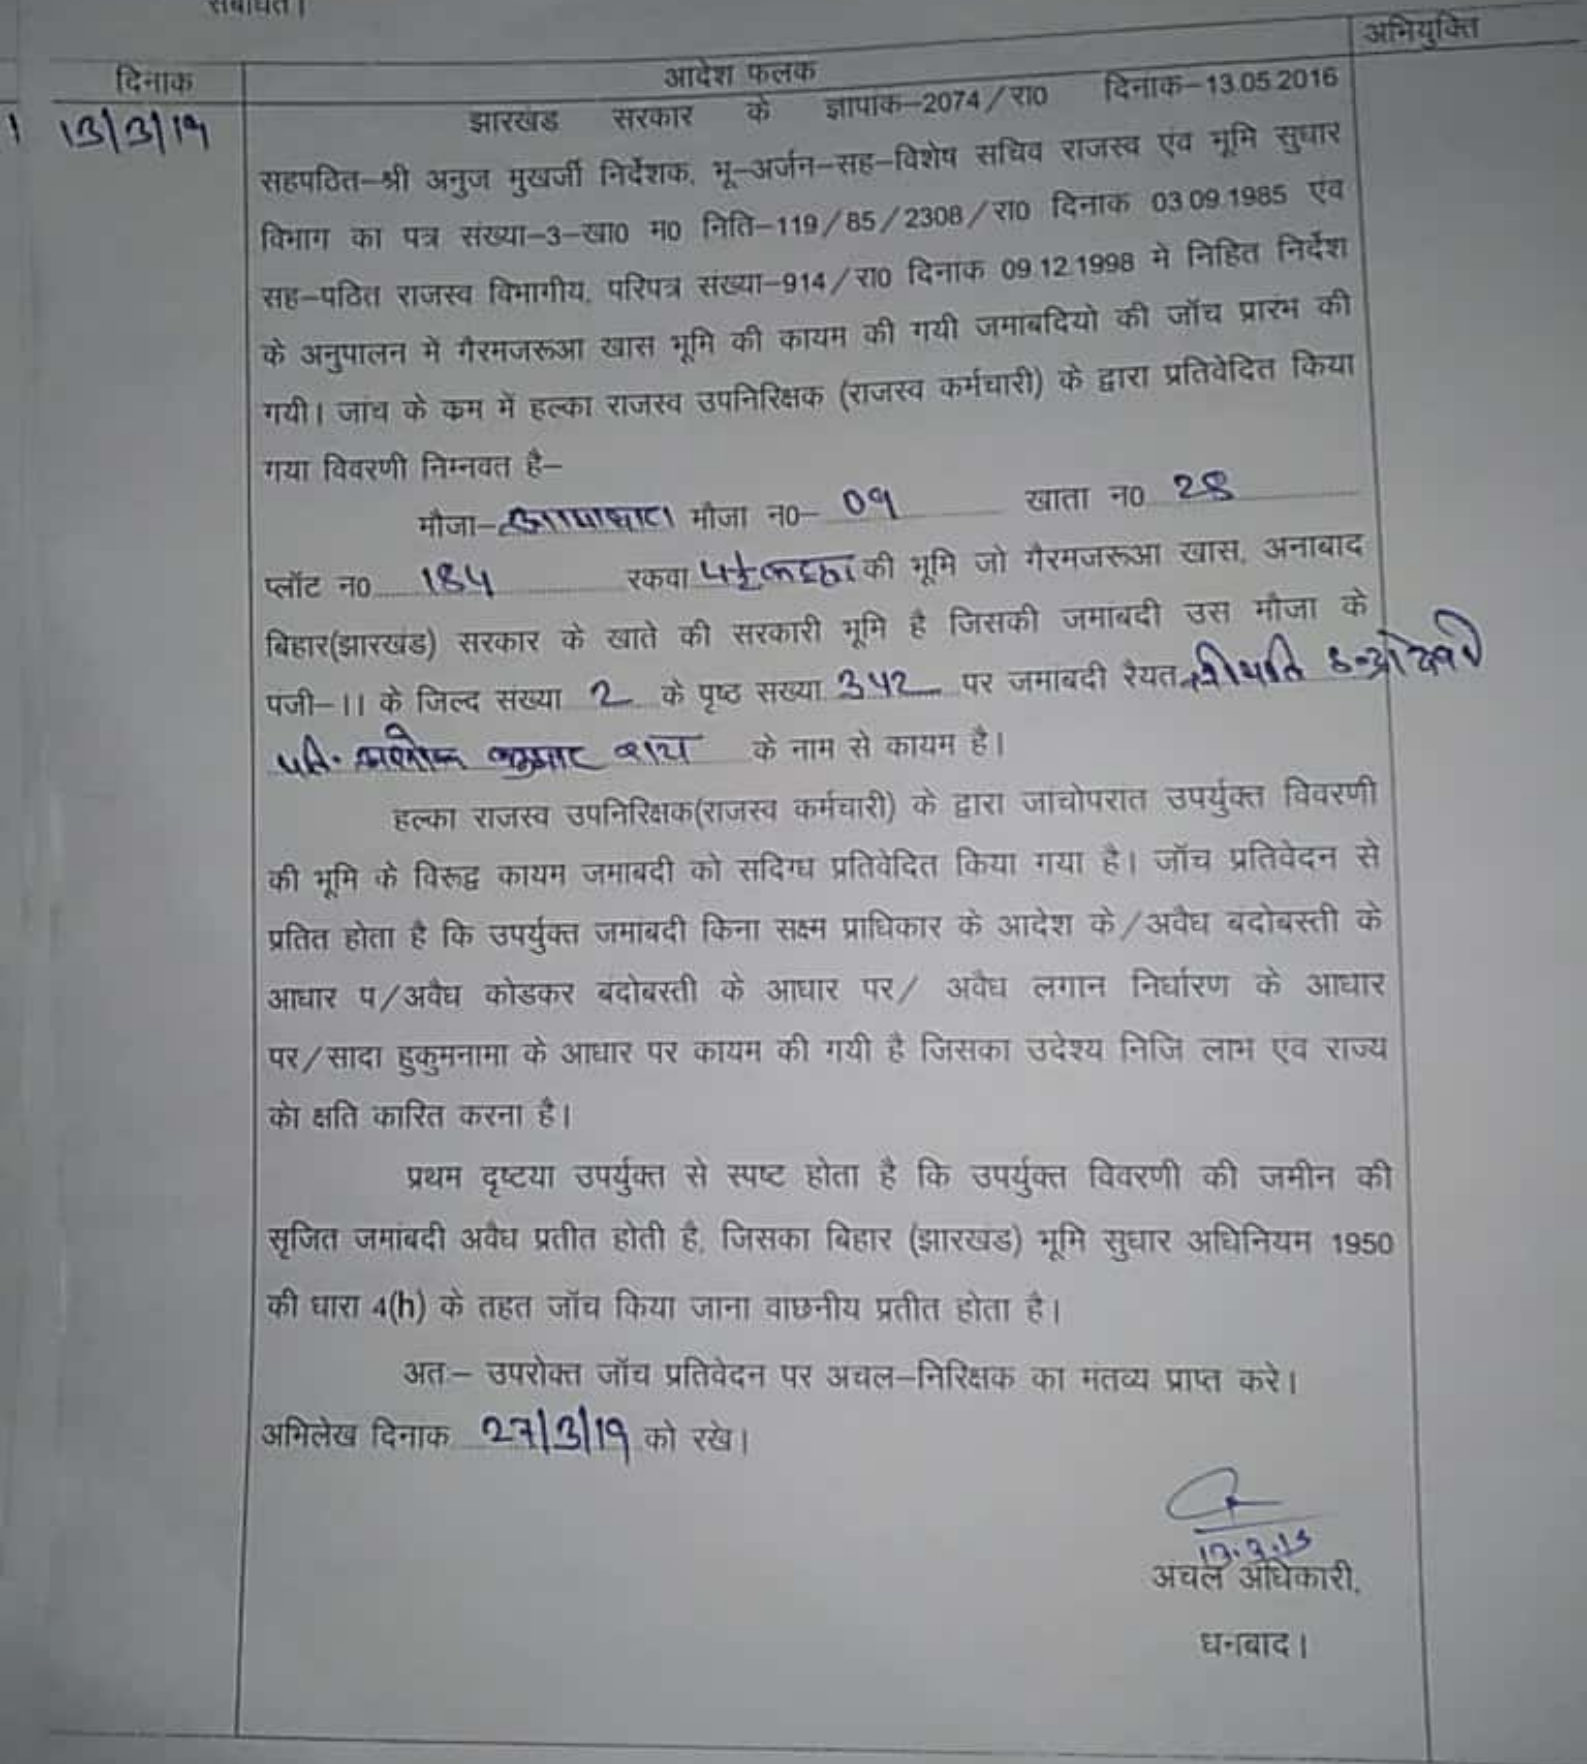 संबंधित।
अभियुक्ति
दिनाक
आदेश फलक
13/3/19
झारखंड सरकार के ज्ञापांक–2074/रा0 दिनांक–13.05.2016
सहपठित–श्री अनुज मुखर्जी निर्देशक, भू–अर्जन–सह–विशेष सचिव राजस्व एंव भूमि सुधार
विभाग का पत्र संख्या–3–खा0 म0 निति–119/85/2308/रा0 दिनांक 03.09.1985 एंव
सह–पठित राजस्व विभागीय, परिपत्र संख्या–914/रा0 दिनांक 09.12.1998 मे निहित निर्देश
के अनुपालन में गैरमजरूआ खास भूमि की कायम की गयी जमांबदियो की जॉच प्रारंभ की
गयी। जांच के कम में हल्का राजस्व उपनिरिक्षक (राजस्व कर्मचारी) के द्वारा प्रतिवेदित किया
गया विवरणी निम्नवत है–
मौजा– मौजा न0– 09 खाता न0 28
प्लॉट न0 184 रकवा 4½ कट्ठा की भूमि जो गैरमजरूआ खास, अनाबाद
बिहार(झारखंड) सरकार के खाते की सरकारी भूमि है जिसकी जमांबदी उस मौजा के
पंजी–।। के जिल्द संख्या 2 के पृष्ठ सख्या 342 पर जमांबदी रैयत श्रीमति देवी
पति. अशोक कुमार राय के नाम से कायम है।
हल्का राजस्व उपनिरिक्षक(राजस्व कर्मचारी) के द्वारा जांचोपरांत उपर्युक्त विवरणी
की भूमि के विरूद्व कायम जमांबदी को सदिग्ध प्रतिवेदित किया गया है। जॉच प्रतिवेदन से
प्रतित होता है कि उपर्युक्त जमांबदी किना सक्ष्म प्राधिकार के आदेश के/अवैध बंदोबस्ती के
आधार प/अवैध कोडकर बंदोबस्ती के आधार पर/ अवैध लगान निर्धारण के आधार
पर/सादा हुकुमनामा के आधार पर कायम की गयी है जिसका उदेश्य निजि लाभ एंव राज्य
केा क्षति कारित करना है।
प्रथम दृष्टया उपर्युक्त से स्पष्ट होता है कि उपर्युक्त विवरणी की जमीन की
सृजित जमांबदी अवैध प्रतीत होती है, जिसका बिहार (झारखंड) भूमि सुधार अधिनियम 1950
की धारा 4(h) के तहत जॉच किया जाना वांछनीय प्रतीत होता है।
अतः– उपरोक्त जॉच प्रतिवेदन पर अंचल–निरिक्षक का मंतव्य प्राप्त करे।
अभिलेख दिनांक 27/3/19 को रखे।
अंचल अधिकारी,
धनबाद।